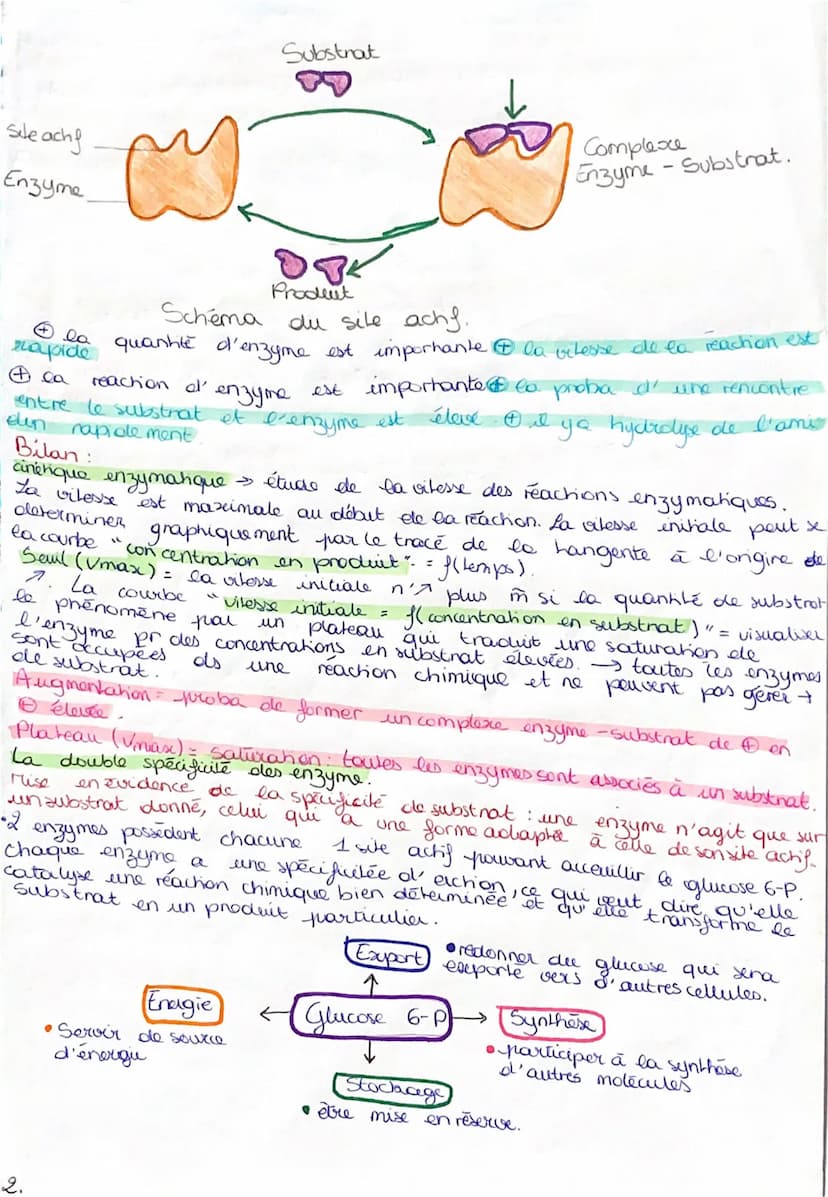 Substrat
Site actif
Enzyme
Complexe
Enzyme - Substrat.
Produit
Schéma du site actif.
⊕ la quantité d'enzyme est importante ⊕ la vitesse de la réaction est
rapide
⊕ la réaction d'enzyme est importante ⊕ la proba d'une rencontre
entre le substrat et l'enzyme est élevé. ⊕ il y a hydrolyse de l'ami
don rapidement.
Bilan :
cinétique enzymatique → étude de la vitesse des réactions enzymatiques.
La vitesse est maximale au début de la réaction. La vitesse initiale peut se
determiner graphiquement par le tracé de la tangente à l'origine de
la courbe "concentration en produit". = f(temps).
Seuil (Vmax) = la vitesse initiale n'↗ plus m̂ si la quantité de substrat
↗. La courbe "vitesse initiale = f(concentration en substrat)" = visualiser
le phénomène par un plateau qui traduit une saturation de
l'enzyme pr des concentrations en substrat élevées. → toutes les enzymes
sont occupées ds une réaction chimique et ne peuvent pas gérer +
de substrat.
Augmentation = proba de former un complexe enzyme - substrat de ⊕ en
⊕ élevée.
Plateau (Vmax) = saturation : toutes les enzymes sont associés à un substrat.
La double spécificité des enzyme.
Mise en évidence de la spécificité de substrat : une enzyme n'agit que sur
un substrat donné, celui qui a une forme adaptée à celle de son site actif.
• 2 enzymes possèdent chacune 1 site actif pouvant acceuillir le glucose 6-P.
Chaque enzyme a une spécificitée d'erction, ce qui veut dire qu'elle
catalyse une réaction chimique bien déterminée et qu'elle transforme le
substrat en un produit particulier.
Export
• redonner du glucose qui sera
exporté vers d'autres cellules.
Énergie
Glucose 6-P
Synthèse
• Servir de source
d'énergie
• participer à la synthèse
d'autres molécules
Stockage
• être mise en réserve.
2.